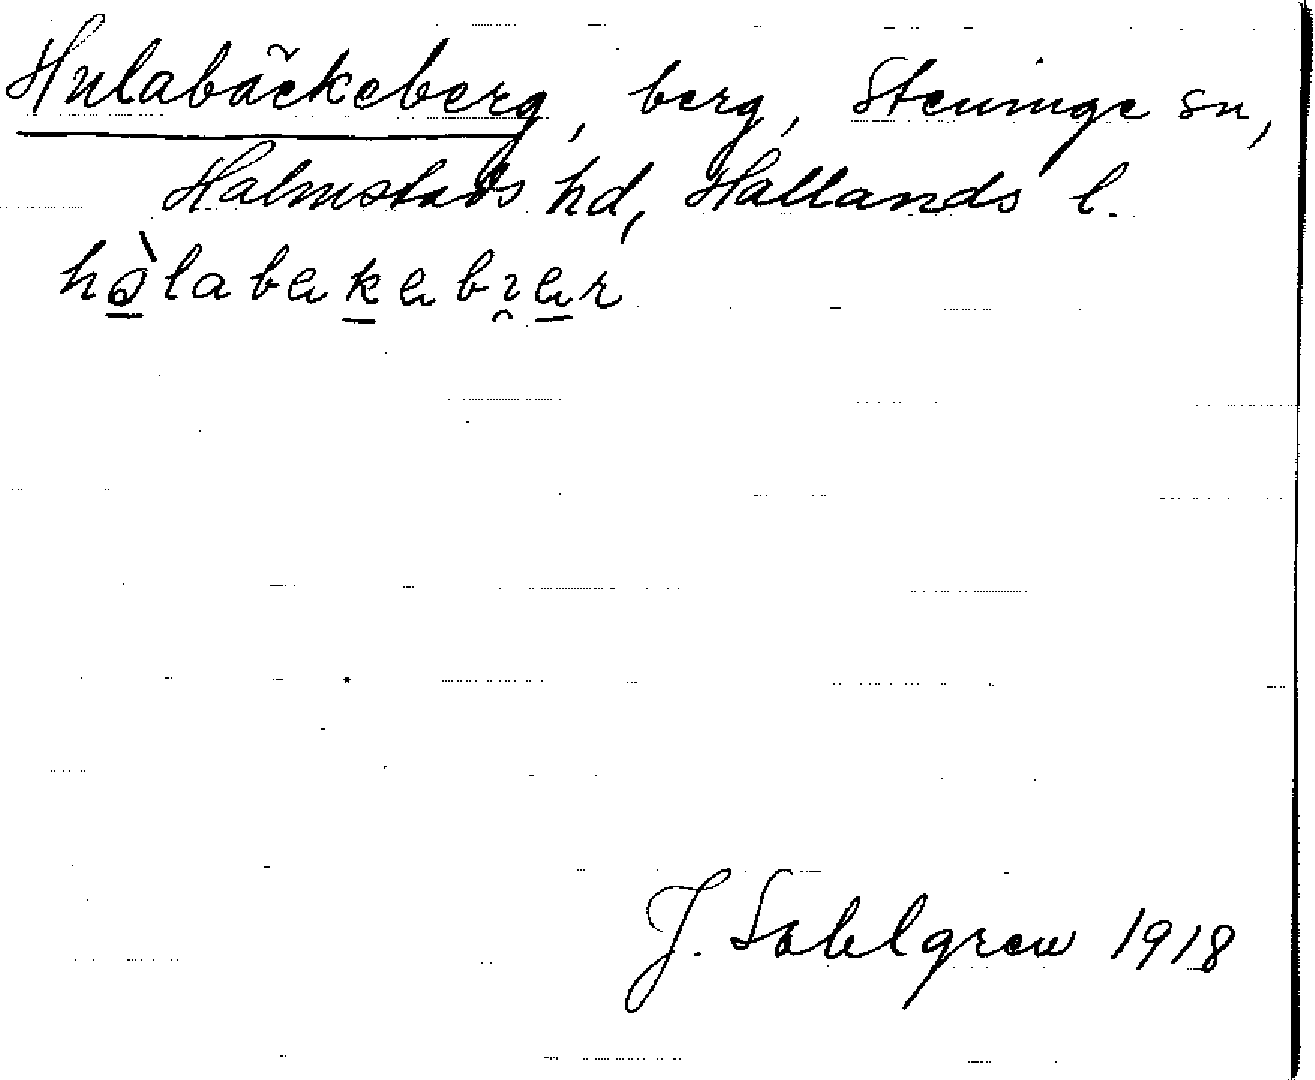 Hulabäckeberg, berg, Steninge sn,
Halmstads hd, Hallands l.
J. Sahlgren 1918